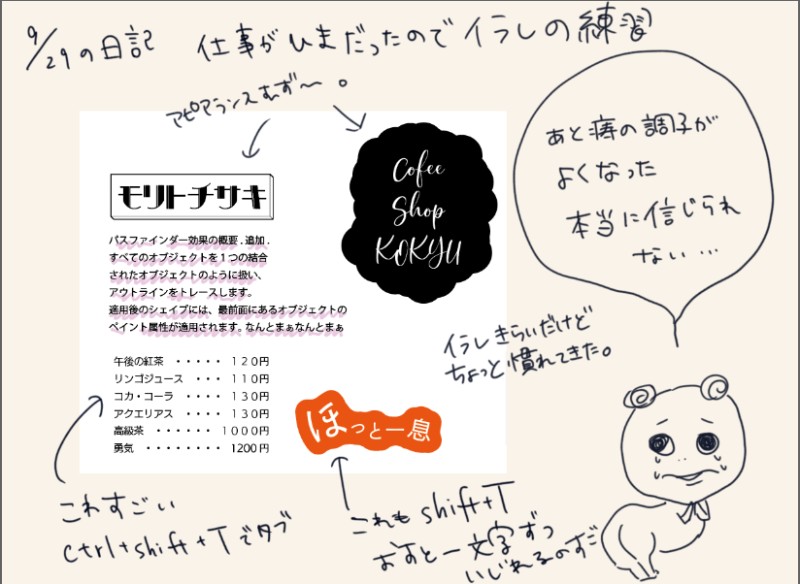 9/29の日記 仕事がひまだったのでイラレの練習
アピアランスむず〜。
モリトチサキ
パスファインダー効果の概要.追加.
すべてのオブジェクトを1つの結合
されたオブジェクトのように扱い、
アウトラインをトレースします。
適用後のシェイプには、最前面にあるオブジェクトの
ペイント属性が適用されます.なんとまぁなんとまぁ
午後の紅茶 ・・・・・ 120円
リンゴジュース ・・・ 110円
コカ・コーラ ・・・・ 130円
アクエリアス ・・・・ 130円
高級茶 ・・・・・・ 1000円
勇気 ・・・・・・・ 1200円
Cofee
Shop
KOKYU
ほっと一息
あと痔の調子が
よくなった
本当に信じられ
ない…
イラレきらいだけど
ちょっと慣れてきた。
これすごい
ctrl+shift+Tでタブ
これもshift+T
おすと一文字ずつ
いじれるのすご